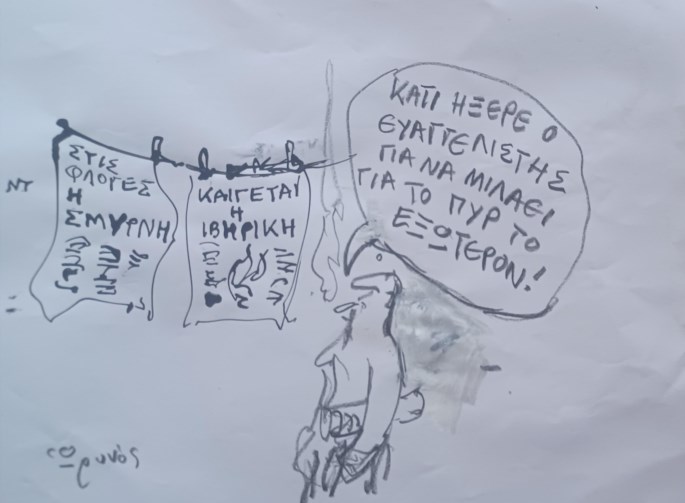 ΣΤΙΣ
ΦΛΟΓΕΣ
Η
ΣΜΥΡΝΗ
ΚΑΙΓΕΤΑΙ
Η
ΙΒΗΡΙΚΗ
ΚΑΤΙ ΗΞΕΡΕ Ο
ΕΥΑΓΓΕΛΙΣΤΗΣ
ΓΙΑ ΝΑ ΜΙΛΑΕΙ
ΓΙΑ ΤΟ ΠΥΡ ΤΟ
ΕΞΩΤΕΡΟΝ!
ΝΤ